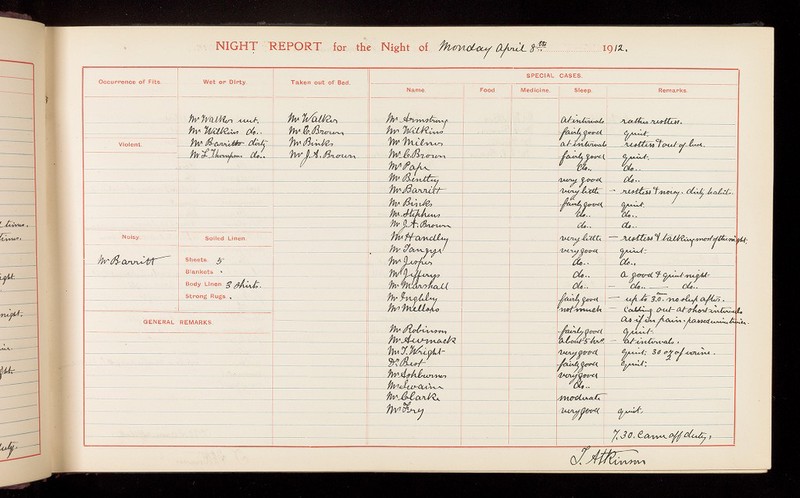 NIGHT REPORT for the Night of Monday April 8th 1912.
SPECIAL CASES.
Occurrence of Fits. Wet or Dirty. Taken out of Bed. Name. Food. Medicine. Sleep. Remarks.
Mr Walker wet. Mr Walker Mr Armstrong at intervals rather restless.
Mr Wilkins do.. Mr C. Brown Mr Wilkins fairly good quiet.
Violent. Mr Barritt dirty Mr Binks Mr Milner at intervals restless & out of bed.
Mr L. Thompson do.. Mr J.A. Brown Mr C. Brown fairly good quiet.
Mr Pape do.. do..
Mr Bentley very good do..
Mr Barritt very little - restless & noisy. dirty habits.
Mr Binks fairly good quiet.
Mr Stephens do.. do..
Mr J.A. Brown do.. do..
Noisy. Soiled Linen. Mr Handley very little - restless & talking most of the night.
Mr Barritt Mr very good quiet.
Sheets 5 Mr Jasper do.. do..
Blankets Mr Jefferys do.. a good & quiet night
Body Linen 3 shirts. Mr Marshall do.. - do.. do..
Strong Rugs Mr Inglesby fairly good - up to 3.0. no sleep after.
Mr Mellapo not much - calling out at short intervals
as if in pain, passed
GENERAL REMARKS Mr Robinson fairly good quiet.
Mr about 5 hrs - at intervals.
Mr T. Wright very good quiet. 30 oz of urine.
Dr. fairly good quiet.
Mr Ashburner very good
Mr Lewain do..
Mr Clarke moderate
Mr Fry very good quiet.
7.30. Came off duty,
J. Atkinson